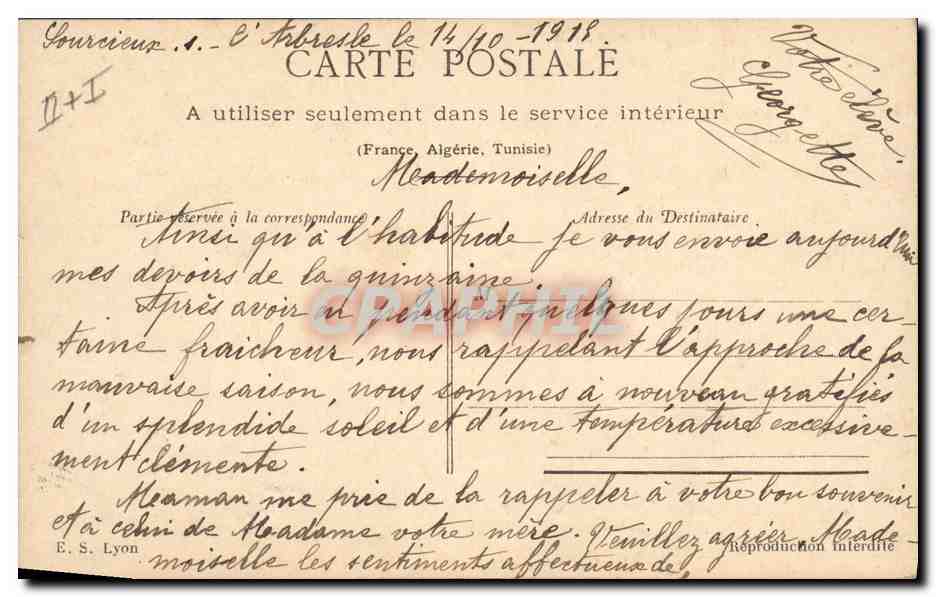 Sourcieux .s.- l'Arbresle le 14/10 -1918.
II + I
CARTE POSTALE
A utiliser seulement dans le service intérieur
(France, Algérie, Tunisie)
Mademoiselle,
Partie réservée à la correspondance
Adresse du Destinataire
Ainsi qu'à l'habitude je vous envoie aujourd'hui
mes devoirs de la quinzaine.
Après avoir eu pendant quelques jours une cer-
taine fraicheur, nous rappelant l'approche de la
mauvaise saison, nous sommes à nouveau gratifiés
d'un splendide soleil et d'une température excessive-
ment clémente.
Maman me prie de la rappeler à votre bon souvenir
et à celui de Madame votre mère. Veuillez agréer, Made-
moiselle les sentiments affectueux de,
Votre élève.
Georgette
E. S. Lyon
Reproduction interdite
CPAPHIL